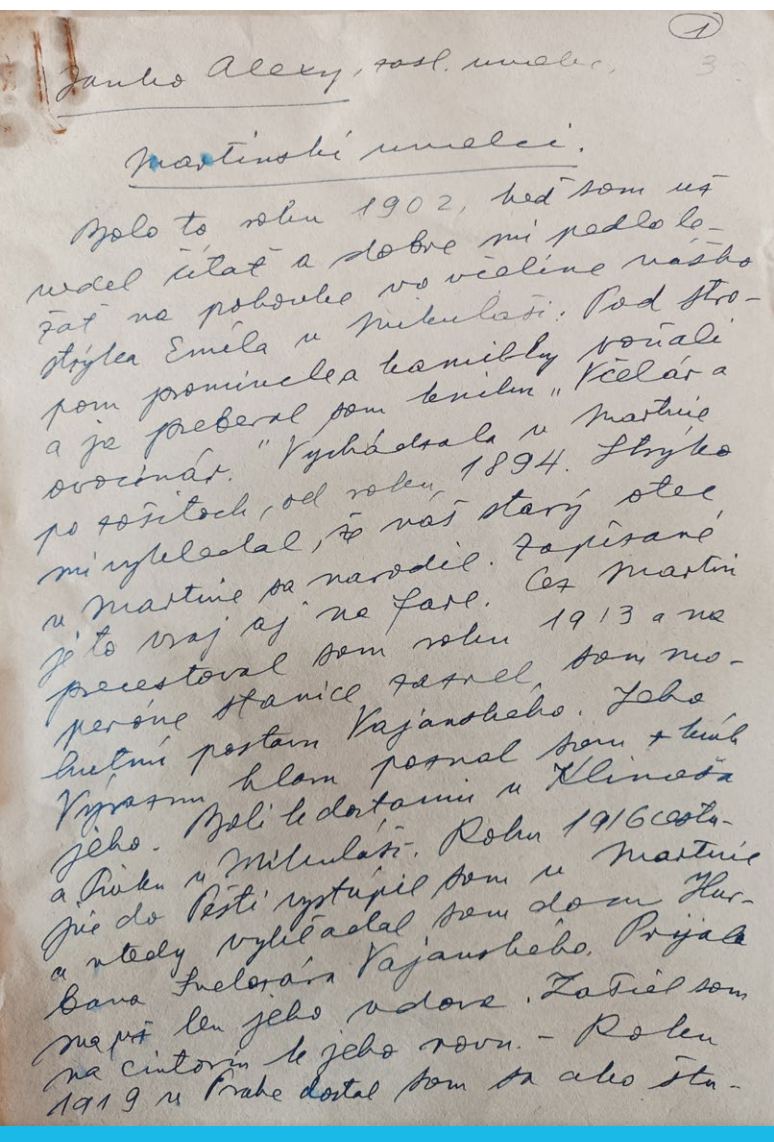 1
3
Janko Alexy, zasl. umelec,
Martinskí umelci.
Bolo to roku 1902, keď som už
vedel čítať a dobre mi padlo le-
žať na pohovke vo včelíne nášho
strýka Emila v Mikuláši. Pod stro-
pom prominclea kamilky voňali
a ja preberal som knihu „Včelár a
ovocinár." Vychádzala v Martine
po zošitoch, od roku 1894. Strýko
mi vykladal, že náš starý otec
v Martine sa narodil. Zapísané
je to vraj aj na fare. Cez Martin
precestoval som roku 1913 a na
peróne stanice zazrel som mo-
hutnú postavu Vajanského. Jeho
Výraznu hlavu poznal som z kníh
jeho. Boli k dostaniu u Klimeša
a Pivku v Mikuláši. Roku 1916 cestu-
júc do Pešti vystúpil som v Martine
a vtedy vyhľadal som dom Hur-
bana Svetozára Vajanského. Prijala
ma už len jeho vdova. Zašiel som
na cintorín k jeho rovu. - Roku
1919 v Prahe dostal som sa ako štu-